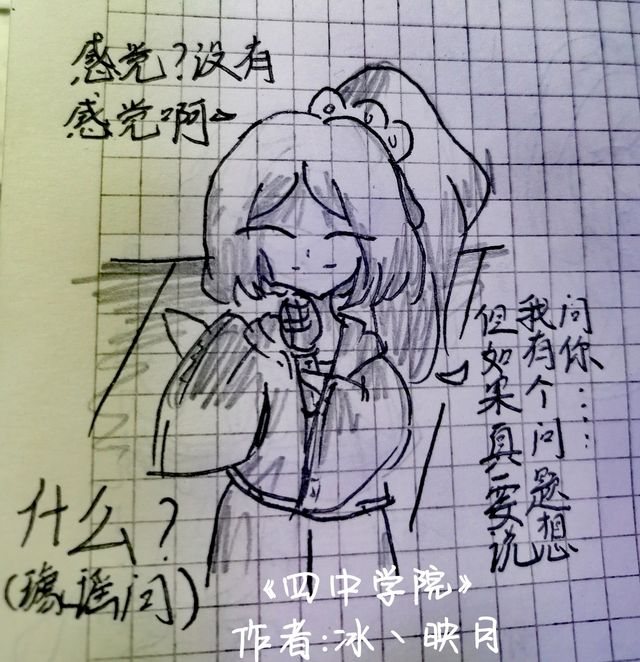 感觉?没有
感觉啊~
但如果真要说
我有个问题想
问你……
什么?
(谣问)
《四中学院》
作者:冰丶映月